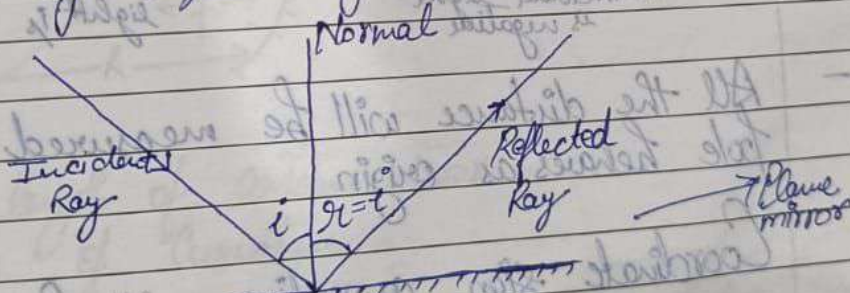 Normal
Incident
Ray
i
r=i
Reflected
Ray
Plane
mirror